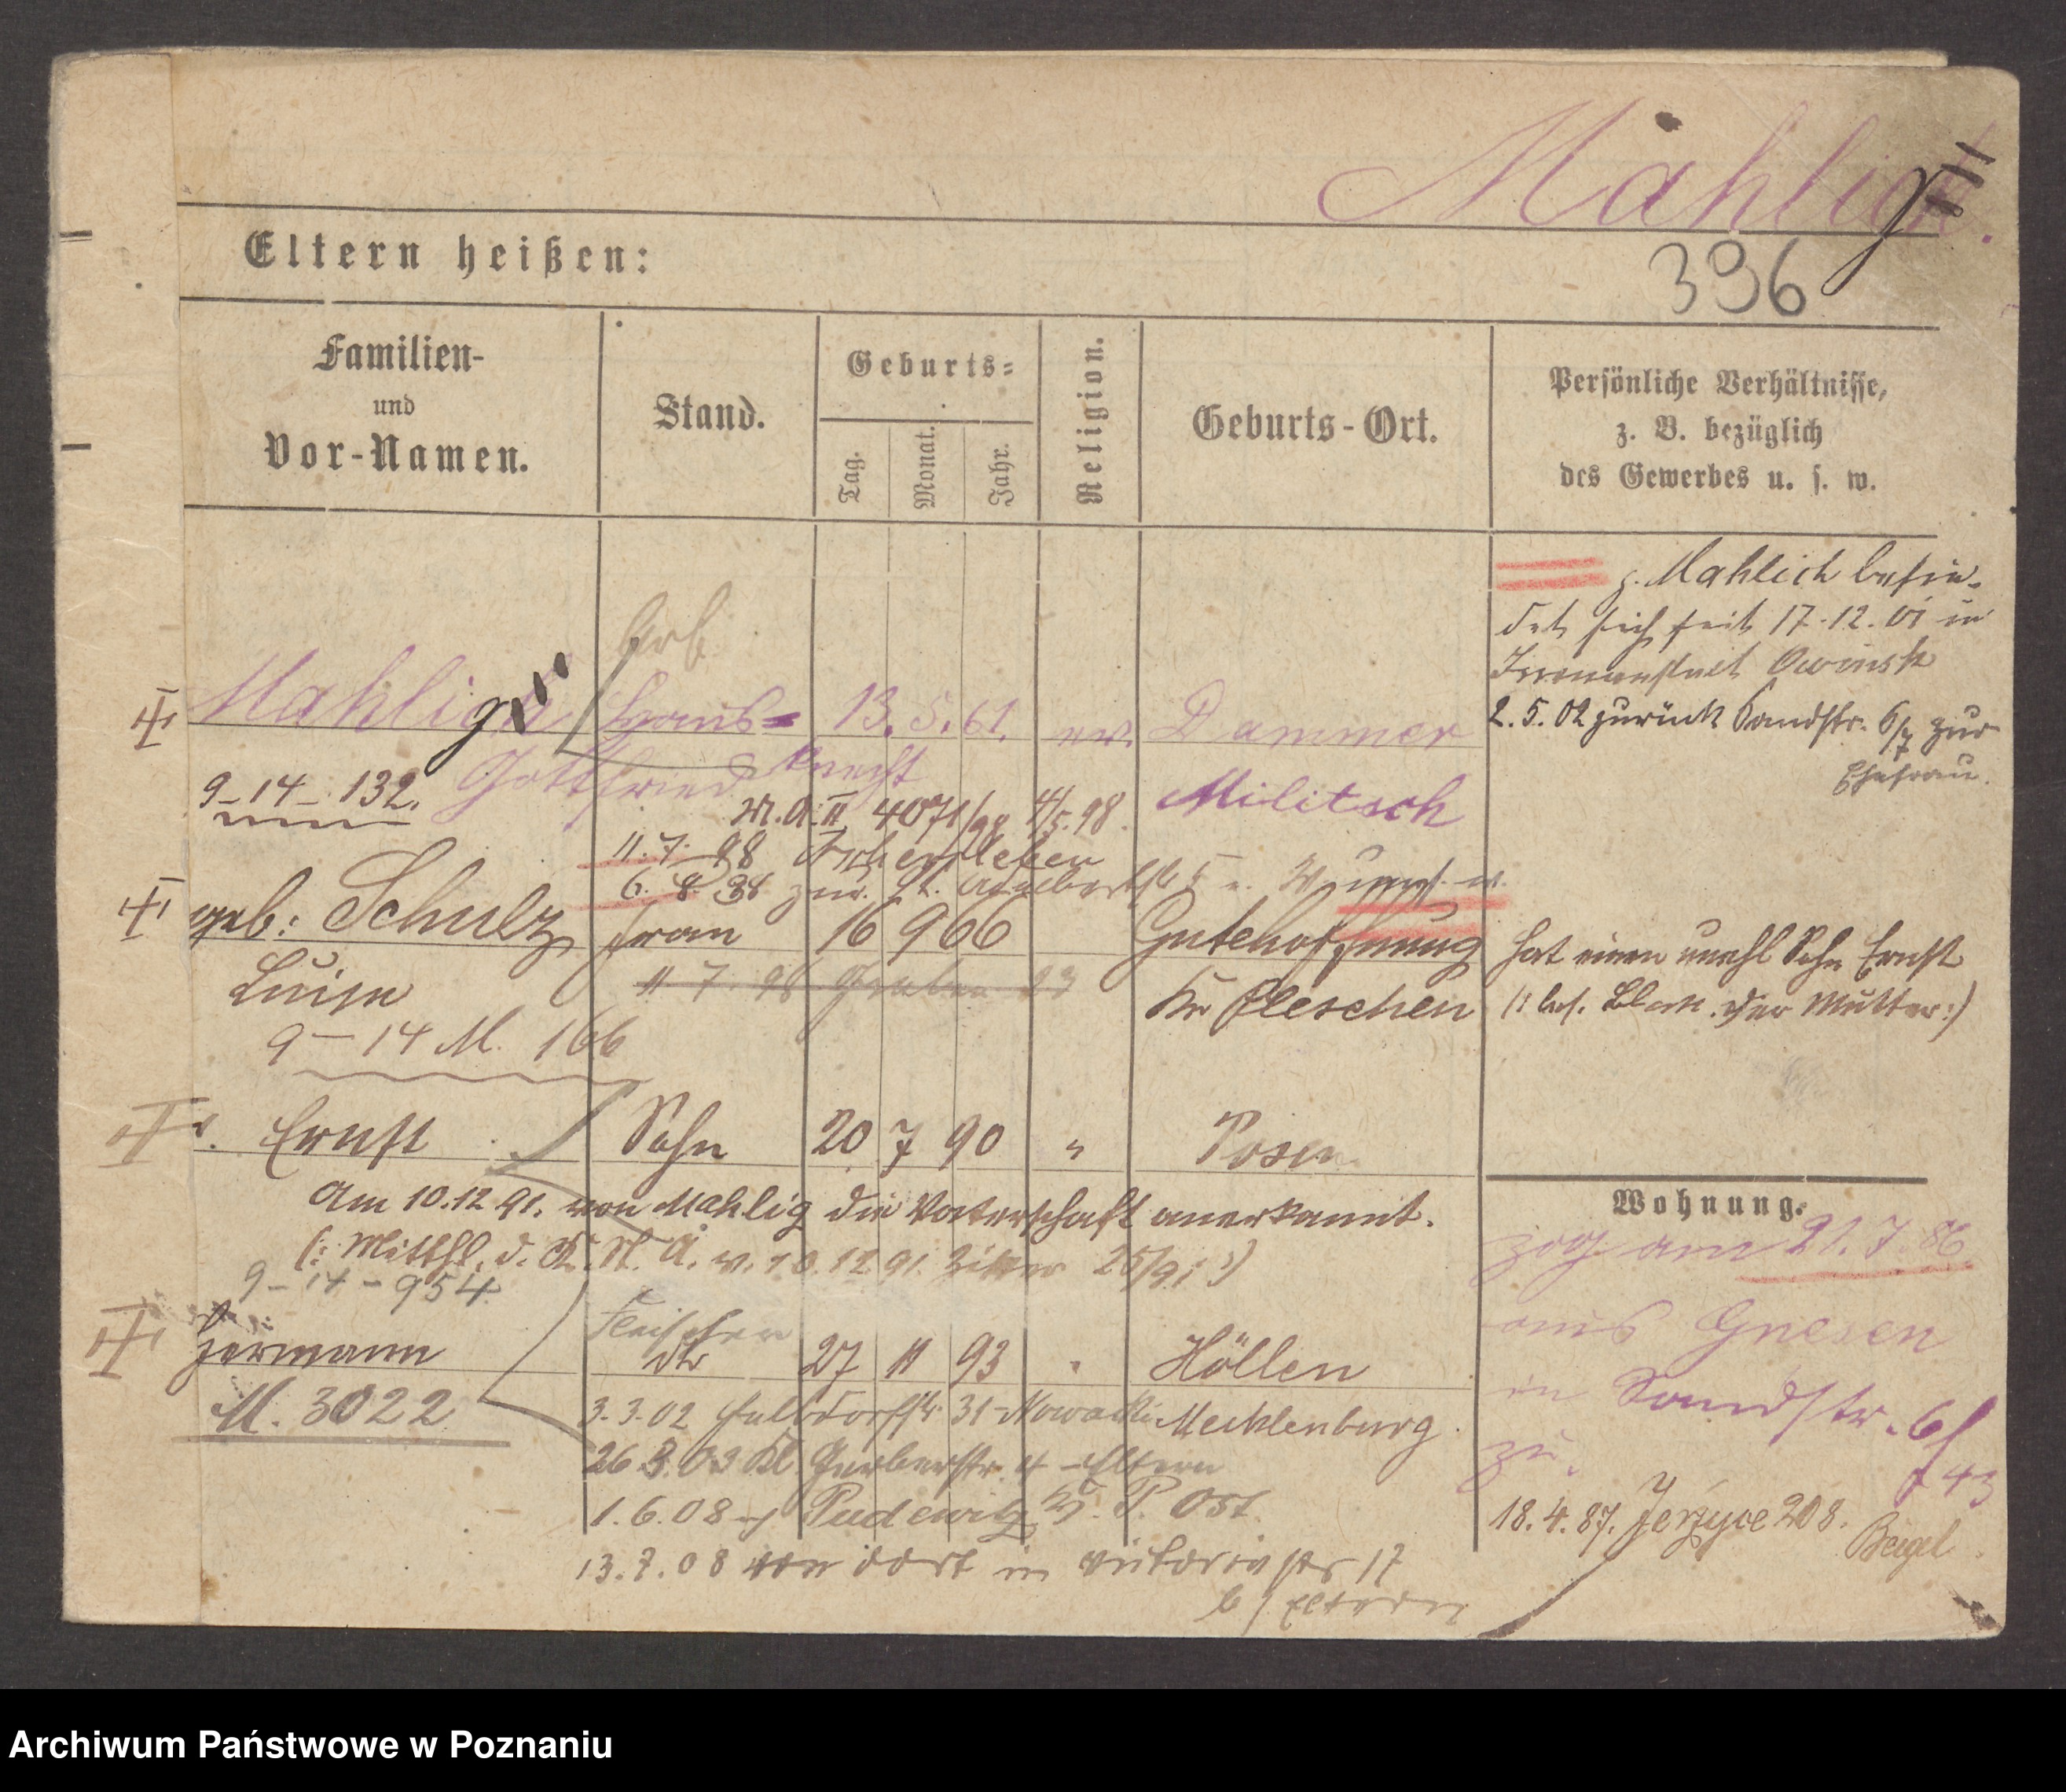 Mahlig
396
Eltern heißen:
Familien-
und
Vor-Namen.
Stand.
Geburts-
Tag.
Monat.
Jahr.
Religion.
Geburts-Ort.
Persönliche Verhältnisse,
z. B. bezüglich
des Gewerbes u. s. w.
p. Mahlich befin-
det sich seit 17.12.01 in
Irrenanstalt Owinsk
2.5.02 zurück Sandstr. 6/7 zur
Ehefrau.
Arb.
Mahlig Haus- 13. 5. 61. ev. Dammer
Gottfried knecht Militsch
9-14-132.
M.A.II 4071/98 4/5.98.
11.7.98 Aschersleben
6. 8. 98 zur. St. Adalbertstr 5
geb: Schulz Frau 16 9 66 Gutehoffnung
Luise
11 7. 98 Graben 23
Kr Pleschen
hat einen unehl Sohn Ernst
(: bes. Blatt der Mutter :)
9-14 M. 166
Ernst Sohn 20 7 90 " Posen
Am 10.12 91. von Mahlig die Vaterschaft anerkannt.
(: Mitthl. d. St. A. v. 10.12 91. 25/91 :)
9-14-954
Hermann Fleischer dto 27 11 93 " Höllen
M. 3022
3.3.02 31 Nowacki Mecklenburg
26.3.03 Kl. Gerberstr 4 Eltern
1.6.08 Pudewitz Kr. P. Ost.
13.7.08 von dort in Viktoriastr 17
b/ Eltern
Wohnung.
zog am 21. 7. 86
aus Gnesen
in Sandstr. 6/7 43
zu.
18.4.87. Jerzyce 208.
Beigel
Archiwum Państwowe w Poznaniu